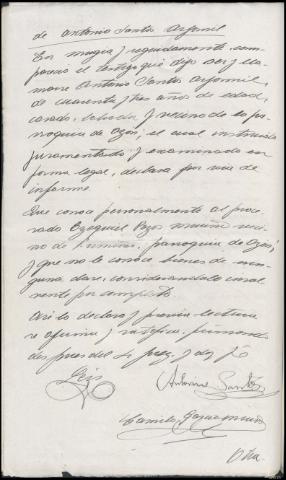 de Antonio Santos Arjomil
En Mugía y seguidamente, com-
pareció el testigo que dijo ser y lla-
marse Antonio Santos Arjomil,
de cuarenta y tres años de edad,
casado, labrador y vecino de la pa-
rroquia de Ozón; el cual instruido
juramentado y examinado en
forma legal, declara por via de
informe.
Que conoce personalmente al proce-
sado Ezequiel Pazos Mouzo veci-
no de Lumiñas, parroquia de Ozón;
y que no le conoce bienes de nin-
guna clase, considerandole insol-
vente por completo.
Asi lo declara y previa lectura
se afirma y ratifica, firmando
despues del Sr Juez, y doy fé
Antonio Santos
Camilo
Otra.